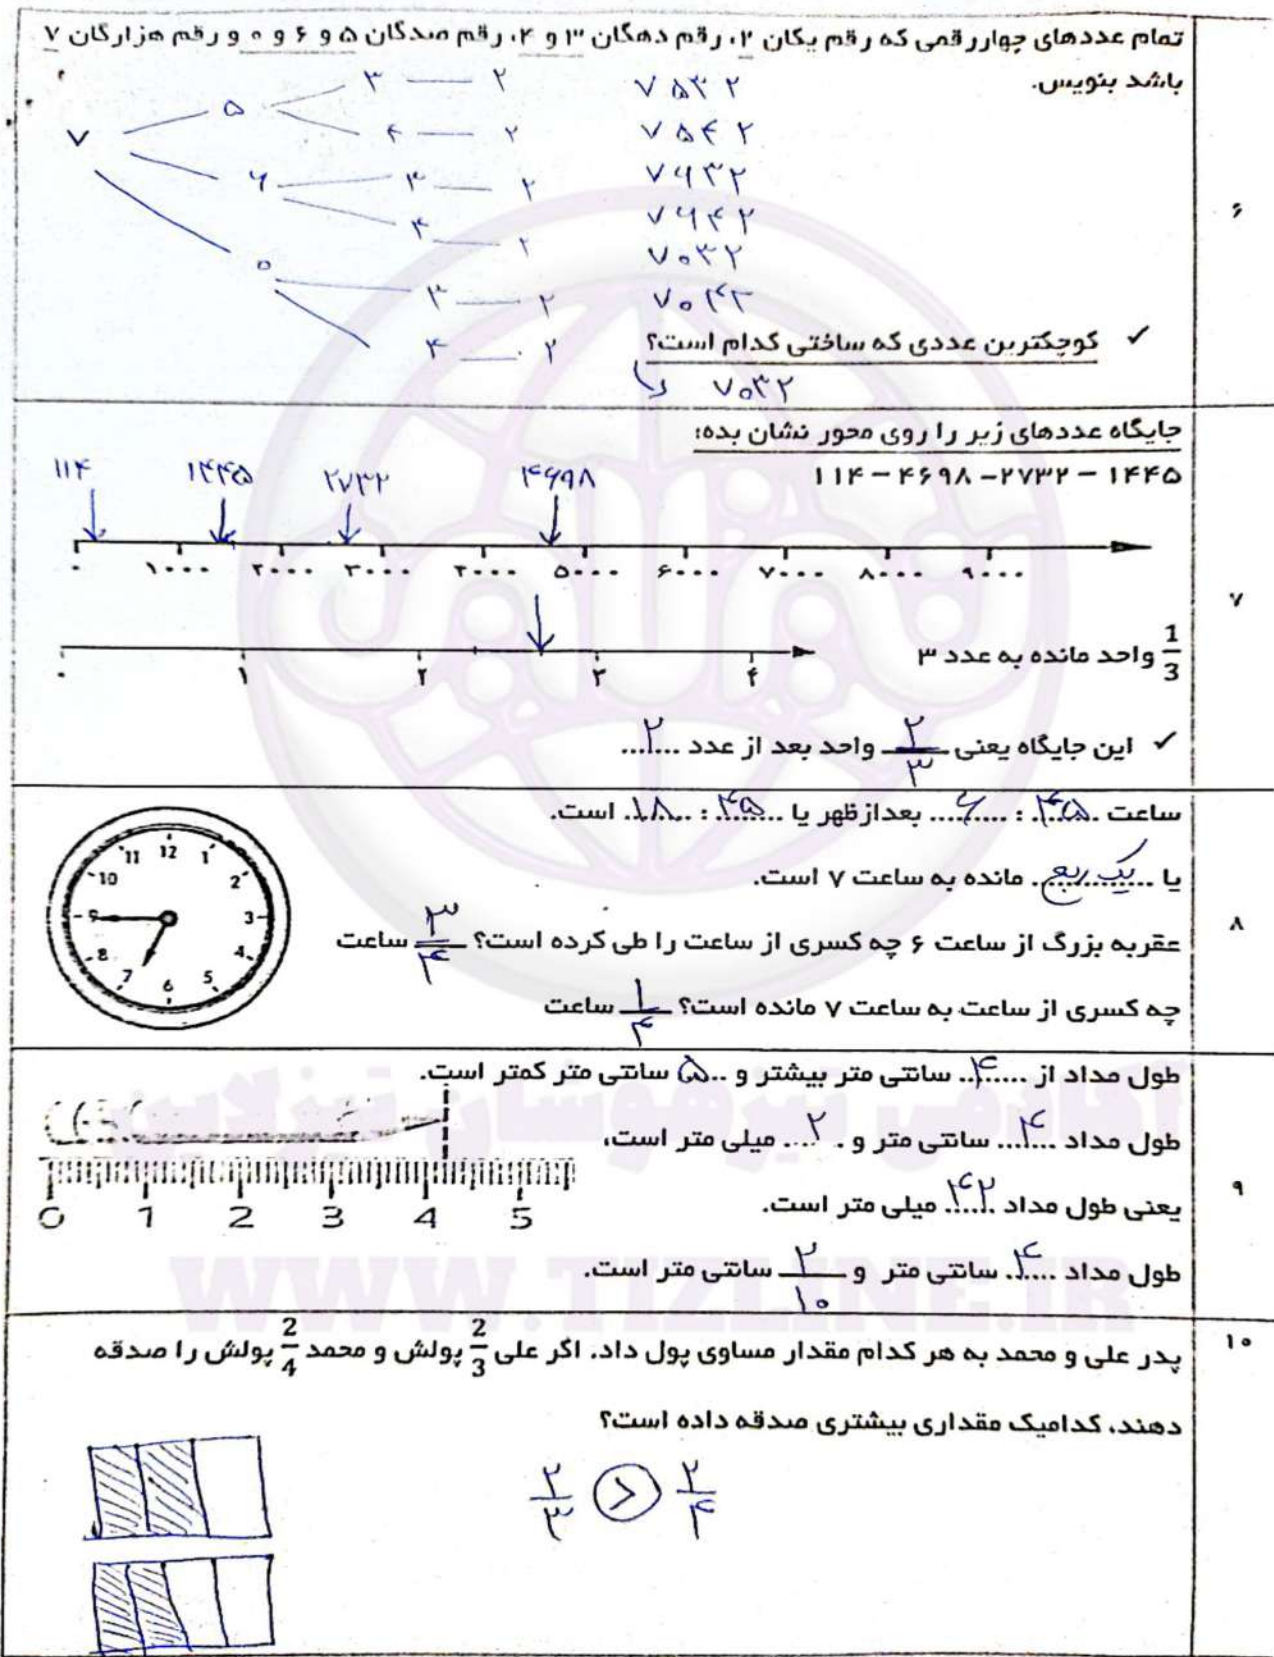 تمام عددهای چهاررقمی که رقم یکان ۲، رقم دهگان ۳ و ۴، رقم صدگان ۵ و ۶ و ۰ و رقم هزارگان ۷
باشد بنویس.
۶
۷
۵
۳ — ۲
۴ — ۲
۶
۳ — ۲
۴ — ۲
۰
۳ — ۲
۴ — ۲
۷۵۳۲
۷۵۴۲
۷۶۳۲
۷۶۴۲
۷۰۳۲
۷۰۴۲
✓ کوچکترین عددی که ساختی کدام است؟
۷۰۳۲
۷
جایگاه عددهای زیر را روی محور نشان بده:
۱۱۴ – ۴۶۹۸ – ۲۷۳۲ – ۱۴۴۵
۱۱۴ ۱۴۴۵ ۲۷۳۲ ۴۶۹۸
۰ ۱۰۰۰ ۲۰۰۰ ۳۰۰۰ ۴۰۰۰ ۵۰۰۰ ۶۰۰۰ ۷۰۰۰ ۸۰۰۰ ۹۰۰۰
1/3 واحد مانده به عدد ۳
۰ ۱ ۲ ۳ ۴
✓ این جایگاه یعنی ۲/۳ واحد بعد از عدد ..۲..
۸
ساعت ۴۵ : ۶ بعدازظهر یا ۴۵ : ۱۸ است.
یا یک ربع مانده به ساعت ۷ است.
عقربه بزرگ از ساعت ۶ چه کسری از ساعت را طی کرده است؟ ۳/۴ ساعت
چه کسری از ساعت به ساعت ۷ مانده است؟ ۱/۴ ساعت
12 1 2 3 4 5 6 7 8 9 10 11
۹
طول مداد از ..۴.. سانتی متر بیشتر و ..۵ سانتی متر کمتر است.
طول مداد ..۴.. سانتی متر و ..۲.. میلی متر است،
یعنی طول مداد ..۴۲.. میلی متر است.
طول مداد ..۴.. سانتی متر و ۲/۱۰ سانتی متر است.
0 1 2 3 4 5
آکادمی تیزهوشان تیزلاین
WWW.TIZLINE.IR
۱۰
پدر علی و محمد به هر کدام مقدار مساوی پول داد. اگر علی 2/3 پولش و محمد 2/4 پولش را صدقه
دهند، کدامیک مقداری بیشتری صدقه داده است؟
۲/۳ > ۲/۴